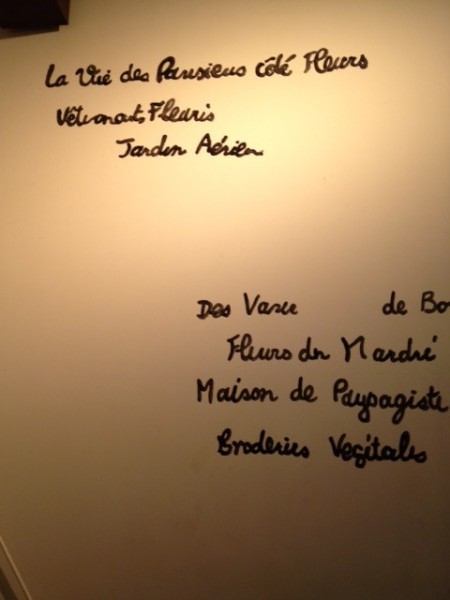 La Vie des Parisiens côté Fleurs
Vêtements Fleuris
Jardin Aérien
Des Vases de Bo
Fleurs du Marché
Maison de Paysagiste
Broderies Végétales